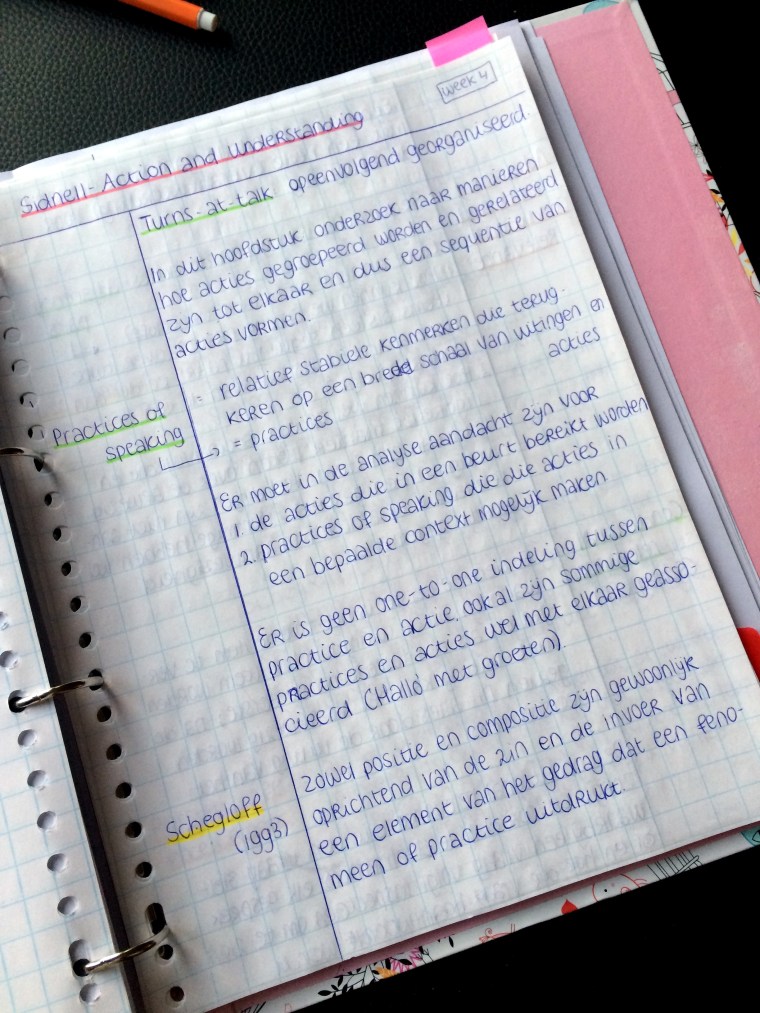 week 4
Sidnell - Action and Understanding
Turns-at-talk opeenvolgend georganiseerd.
In dit hoofdstuk onderzoek naar manieren
hoe acties gegroepeerd worden en gerelateerd
zijn tot elkaar en dus een sequentie van
acties vormen.
= relatief stabiele kenmerken die terug-
keren op een brede schaal van uitingen en
acties
Practices of
speaking
= practices
Er moet in de analyse aandacht zijn voor
1. de acties die in een beurt bereikt worden
2. practices of speaking die die acties in
een bepaalde context mogelijk maken
Er is geen one-to-one indeling tussen
practice en actie, ook al zijn sommige
practices en acties wel met elkaar geasso-
cieerd ('Hallo' met groeten).
Zowel positie en compositie zijn gewoonlijk
oprichtend van de zin en de invoer van
een element van het gedrag dat een feno-
meen of practice uitdrukt.
Schegloff
(1993)